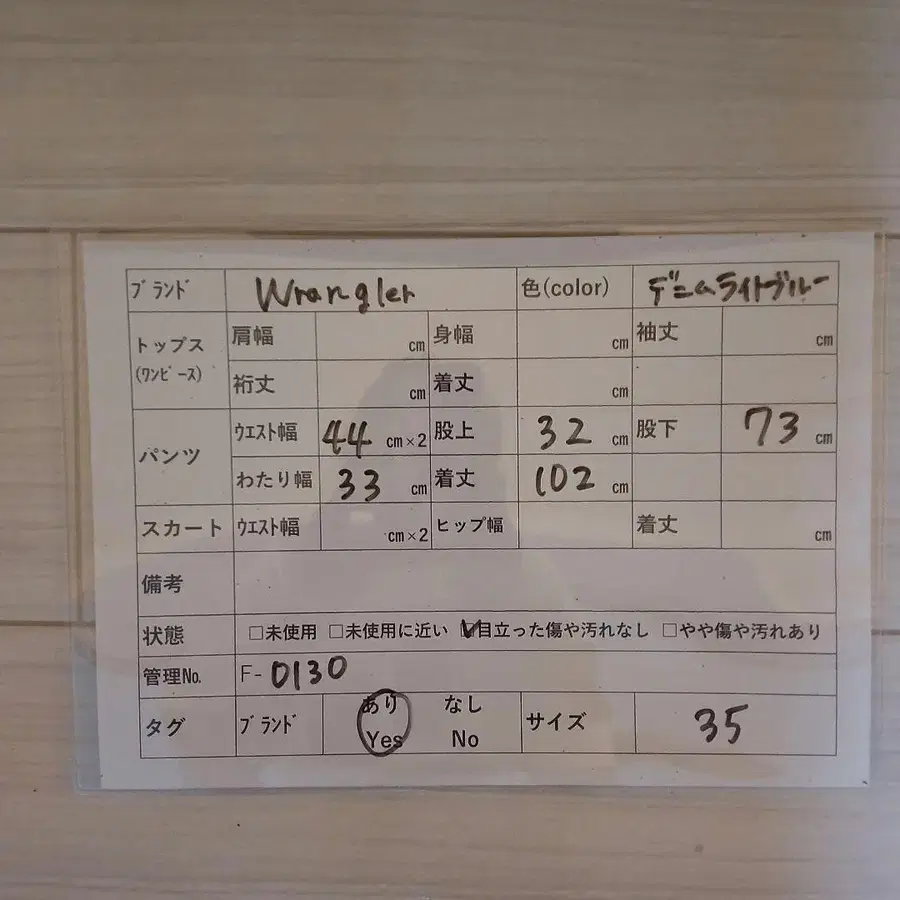 ブランド Wrangler 色(color) デニムライトブルー
トップス(ワンピース) 肩幅 cm 身幅 cm 袖丈 cm
裄丈 cm 着丈 cm
パンツ ウエスト幅 44 cm×2 股上 32 cm 股下 73 cm
わたり幅 33 cm 着丈 102 cm
スカート ウエスト幅 cm×2 ヒップ幅 着丈 cm
備考
状態 □未使用 □未使用に近い ☑目立った傷や汚れなし □やや傷や汚れあり
管理No. F-0130
タグ ブランド あり Yes なし No サイズ 35